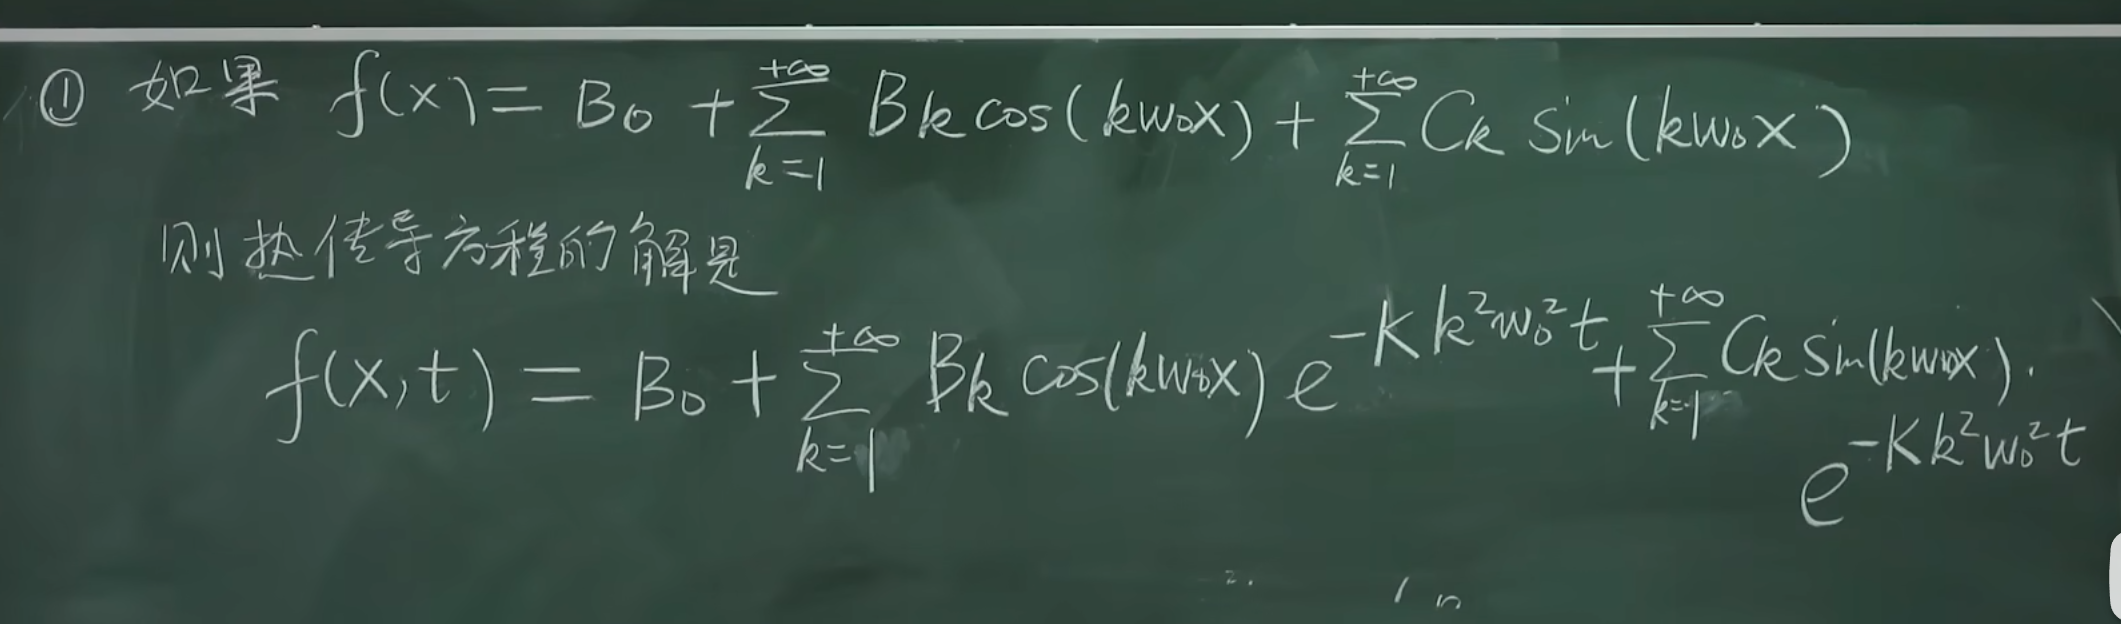 ① 如果 f(x) = B₀ + ∑_{k=1}^{+∞} Bₖ cos(kω₀x) + ∑_{k=1}^{+∞} Cₖ sin(kω₀x)
则热传导方程的解是
f(x,t) = B₀ + ∑_{k=1}^{+∞} Bₖ cos(kω₀x) e^{-Kk²ω₀²t} + ∑_{k=1}^{+∞} Cₖ sin(kω₀x)·
e^{-Kk²ω₀²t}